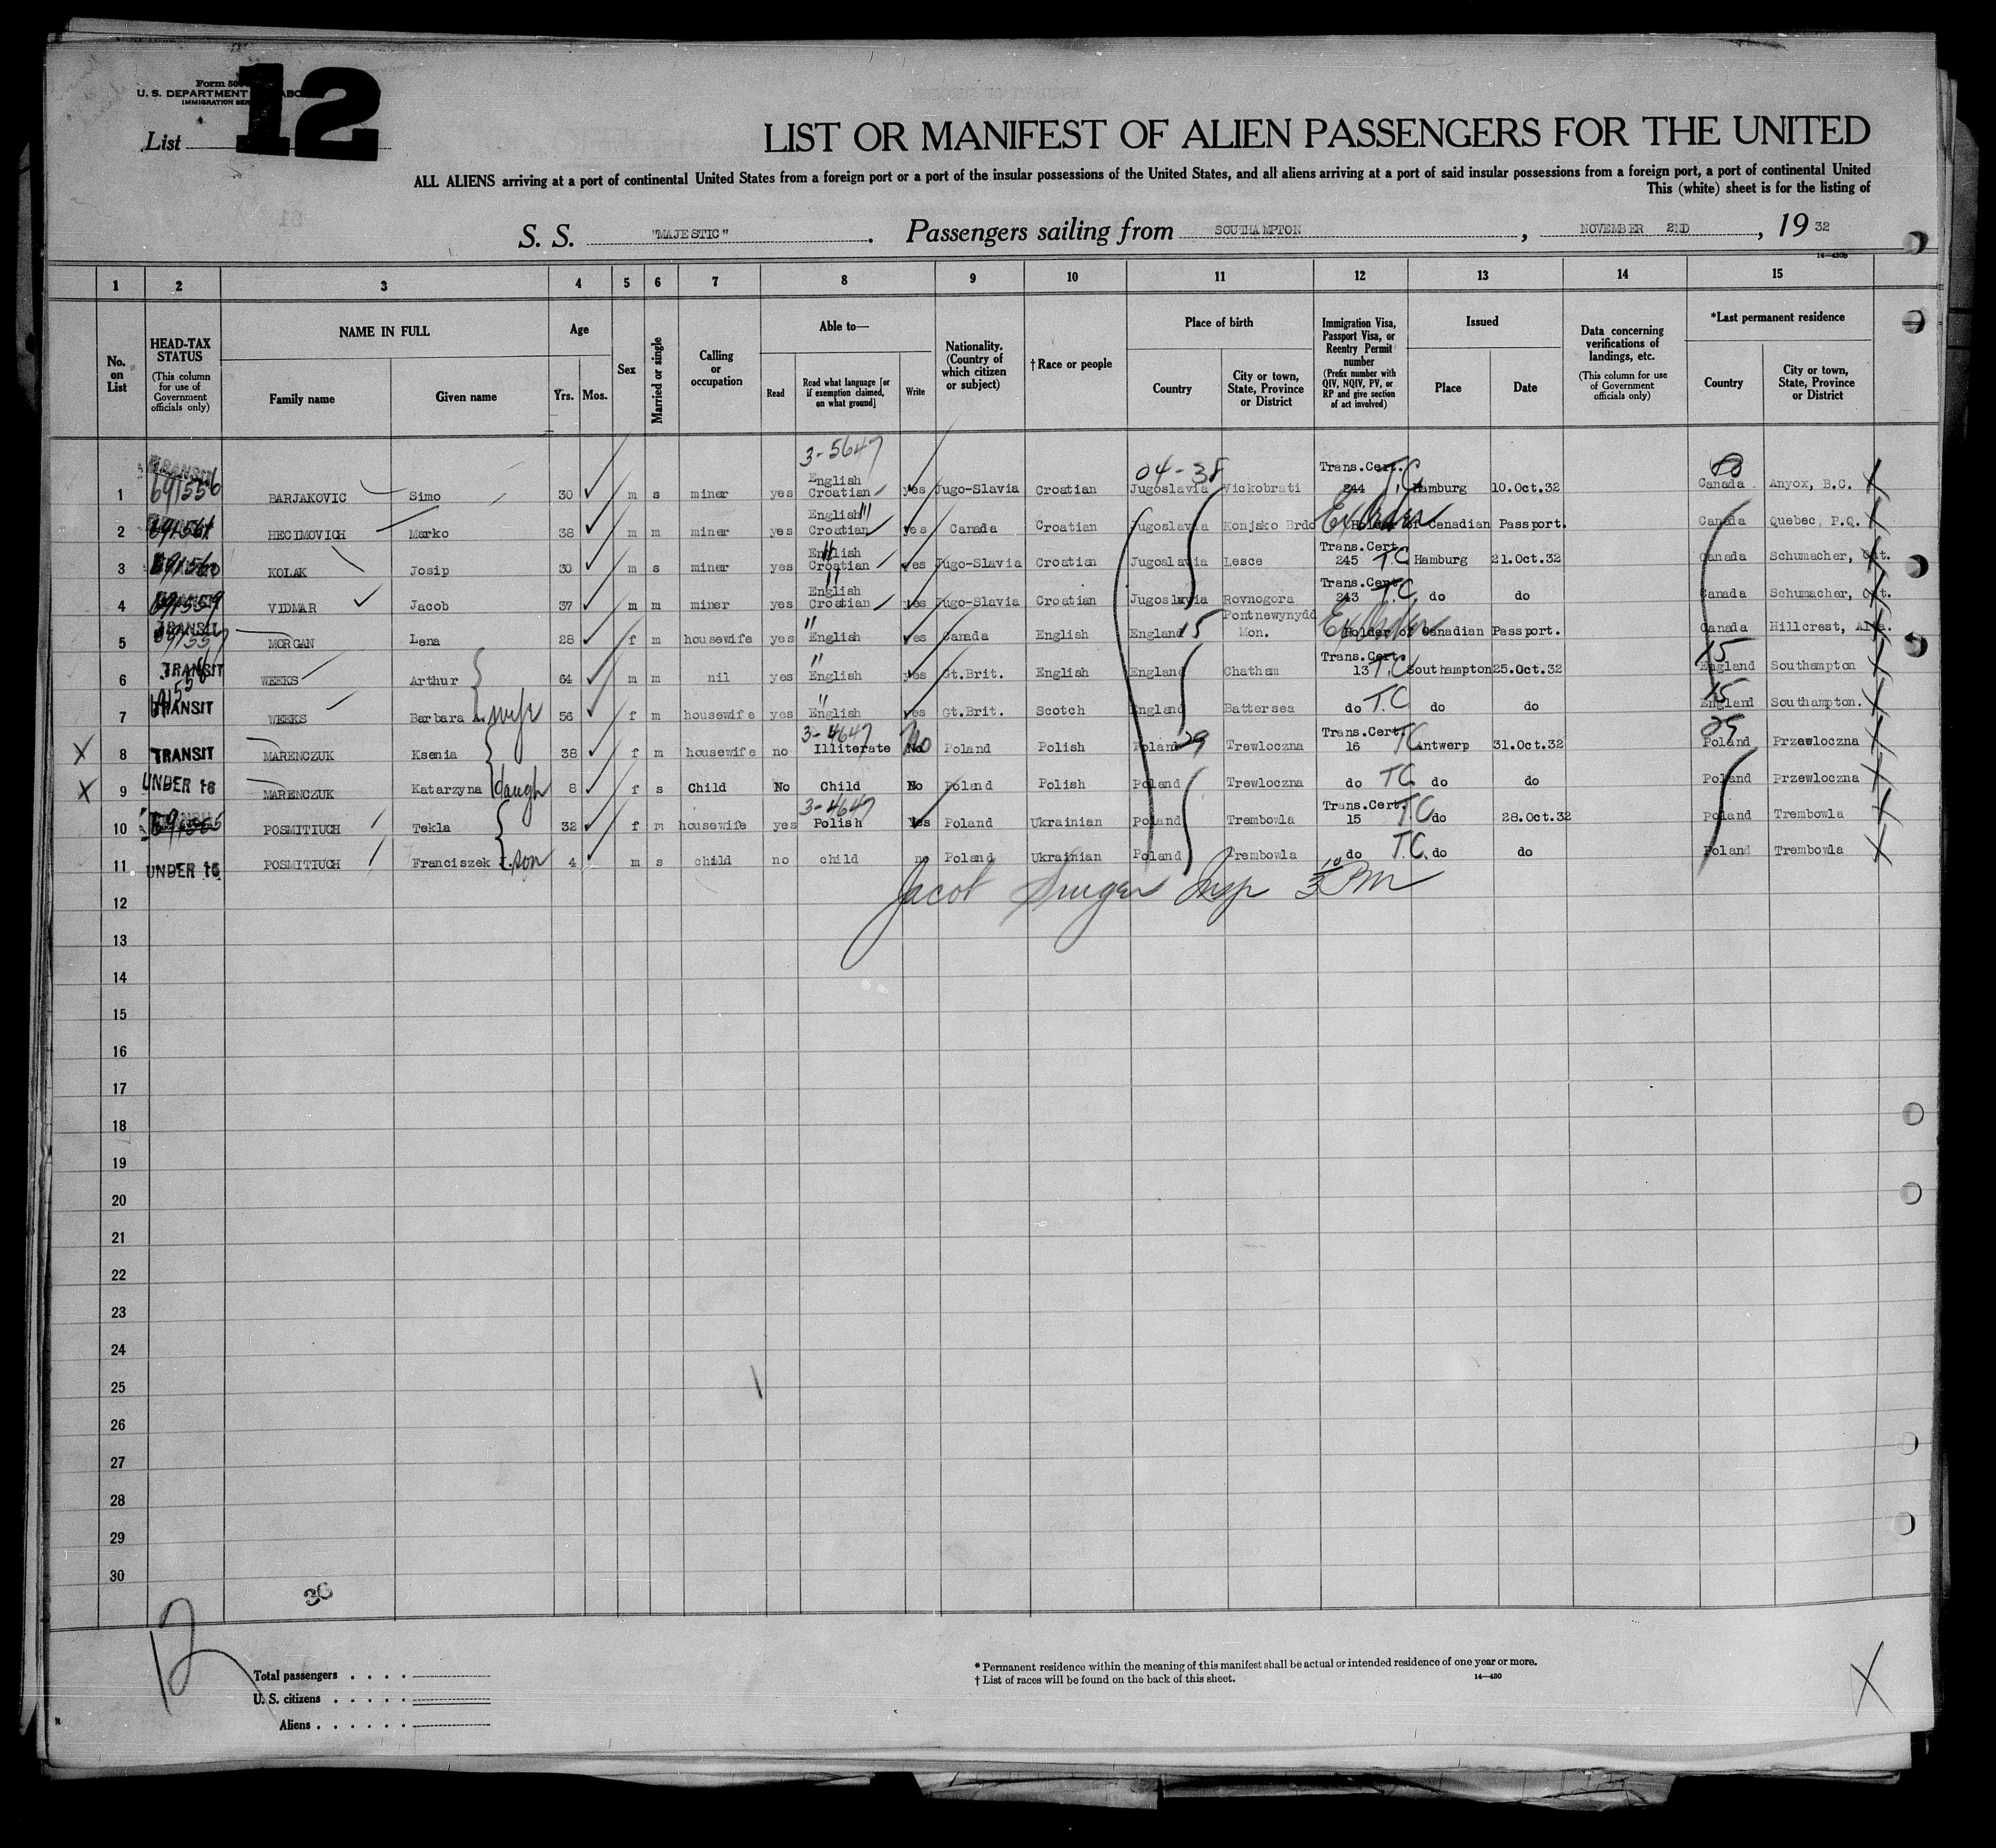 Form 500
U. S. DEPARTMENT LABOR
IMMIGRATION SER
List 12
LIST OR MANIFEST OF ALIEN PASSENGERS FOR THE UNITED
ALL ALIENS arriving at a port of continental United States from a foreign port or a port of the insular possessions of the United States, and all aliens arriving at a port of said insular possessions from a foreign port, a port of continental United
This (white) sheet is for the listing of
S. S. "MAJESTIC". Passengers sailing from SOUTHAMPTON, NOVEMBER 2ND, 19 32
14—430b
1 2 3 4 5 6 7 8 9 10 11 12 13 14 15
No. on List
HEAD-TAX STATUS (This column for use of Government officials only)
NAME IN FULL Family name Given name
Age Yrs. Mos.
Sex
Married or single
Calling or occupation
Able to— Read Read what language [or if exemption claimed, on what ground] Write
Nationality. (Country of which citizen or subject)
†Race or people
Place of birth Country City or town, State, Province or District
Immigration Visa, Passport Visa, or Reentry Permit number (Prefix number with QIV, NQIV, PV, or RP and give section of act involved)
Issued Place Date
Data concerning verifications of landings, etc. (This column for use of Government officials only)
*Last permanent residence Country City or town, State, Province or District
3-5647 04-38
1 TRANSIT 691556 BARJAKOVIC Simo 30 m s miner yes English Croatian yes Jugo-Slavia Croatian Jugoslavia Vickobrati Trans.Cert. 244 T.C. Hamburg 10.Oct.32 Canada Anyox, B.C. X
2 691561 HECIMOVICH Marko 38 m m miner yes English Croatian yes Canada Croatian Jugoslavia Konjsko Brdo Holder of Canadian Passport. Canada Quebec, P.Q. X
3 691560 KOLAK Josip 30 m s miner yes English Croatian yes Jugo-Slavia Croatian Jugoslavia Lesce Trans.Cert. 245 T.C Hamburg 21.Oct.32 Canada Schumacher, Ont. X
4 691559 VIDMAR Jacob 37 m m miner yes English Croatian yes Jugo-Slavia Croatian Jugoslavia Rovnogora Trans.Cert. 243 T.C. do do Canada Schumacher, Ont. X
5 TRANSIT MORGAN Lena 28 f m housewife yes English yes Canada English England 15 Pontnewynydd Mon. Holder of Canadian Passport. Canada Hillcrest, Alta. X
6 TRANSIT WEEKS Arthur 64 m m nil yes English yes Gt.Brit. English England Chatham Trans.Cert. 13 T.C Southampton 25.Oct.32 15 England Southampton X
7 TRANSIT WEEKS Barbara A. wife 56 f m housewife yes English yes Gt.Brit. Scotch England Battersea do T.C do do 15 England Southampton. X
3-4647
X 8 TRANSIT MARENCZUK Ksenia 38 f m housewife no Illiterate No No Poland Polish Poland 29 Trewloczna Trans.Cert. 16 T.C Antwerp 31.Oct.32 Poland Przewloczna X
X 9 UNDER 16 MARENCZUK Katarzyna daugh 8 f s Child No Child No Poland Polish Poland Trewloczna do T.C. do do Poland Przewloczna X
3-4647
10 POSMITIUCH Tekla 32 f m housewife yes Polish Yes Poland Ukrainian Poland Trembowla Trans.Cert. 15 T.C. do 28.Oct.32 Poland Trembowla X
11 UNDER 16 POSMITIUCH Franciszek son 4 m s child no child no Poland Ukrainian Poland Trembowla do T.C. do do Poland Trembowla X
Jacob Singer Insp 3 10 PM
12
13
14
15
16
17
18
19
20
21
22
23
24
25
26
27
28
29
30
30
12
Total passengers . . . .
U. S. citizens . . . . .
Aliens . . . . . .
* Permanent residence within the meaning of this manifest shall be actual or intended residence of one year or more.
† List of races will be found on the back of this sheet.
14—430
X